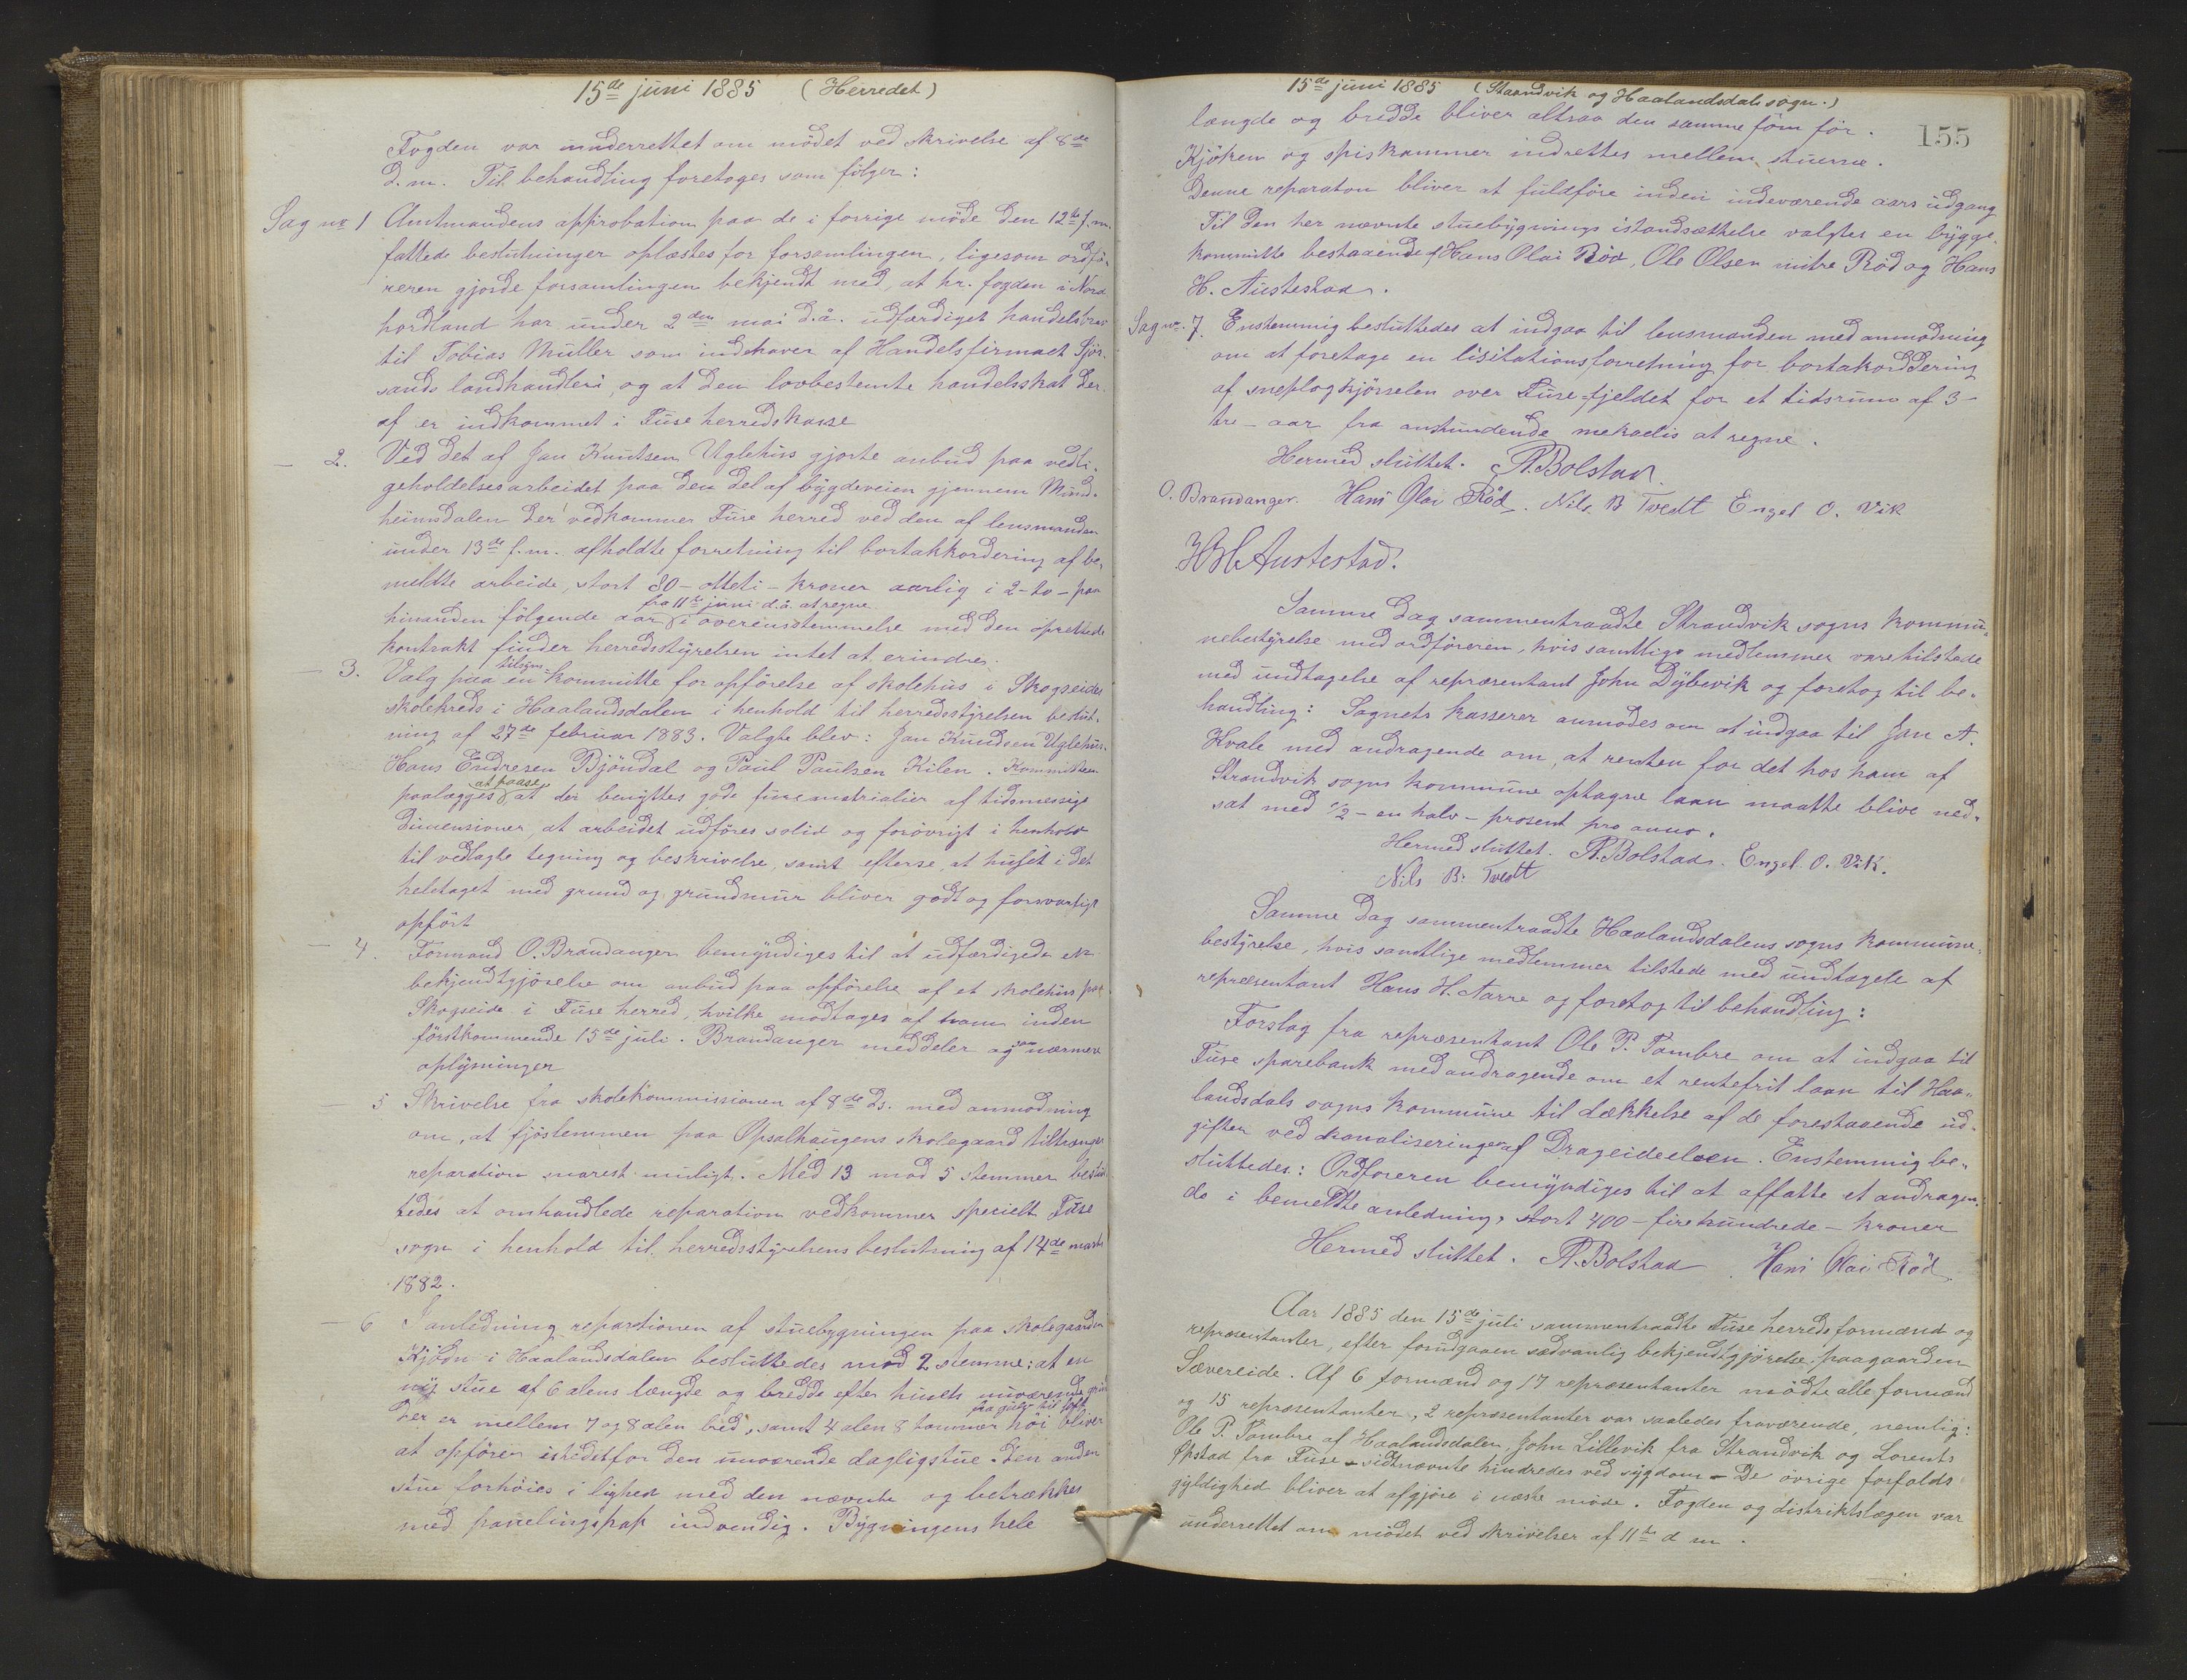 15de juni 1885 (Herredet)
Fogden var underrettet om mödet ved skrivelse af 8de
d.m. Til behandling foretoges som fölger:
Sag nr 1 Amtmandens approbation paa de i forrige möde den 12te f.m.
fattede beslutninger oplæstes for forsamlingen, ligesom ordfö-
reren gjorde forsamlingen bekjendt med, at hr. fogden i Nord
hordland har under 2den mai d.å. udfærdiget handelsbrev
til Tobias Müller som indehaver af Handelsfirmaet Sjör-
sands landhandleri, og at den lovbestemte handelsskat der-
af er indkommet i Fuse herredskasse
— 2. Ved det af Jan Knutsen Uglehus gjorte anbud paa vedli-
geholdelsesarbeidet paa den del af bygdeveien gjennem Mund-
heimsdalen der vedkommer Fuse herred ved den af lensmanden
under 13de f.m. afholdte forretning til bortakkordering af be-
meldte arbeide, stort 80 - otteti - kroner aarlig i 2 - to - paa
fra 11te juni d.å. at regne
hinanden fölgende aar i overensstemmelse med den oprettede
kontrakt finder herredsstyrelsen intet at erindre.
— 3. Valg paa en tilsyns-kommitte for opförelse af skolehus i Skogseides
skolekreds i Haalandsdalen i henhold til herredsstyrelsen beslut-
ning af 27de februar 1883. Valgte blev: Jan Knudsen Uglehus,
Hans Endresen Bjöndal og Paul Paulsen Kilen. Kommitteen
paalægges at paase, at der benyttes gode furematrialier af tidsmessige
dimensioner, at arbeidet udföres solid og forövrigt i henhold
til vedlagte tegning og beskrivelse, samt efterse, at huset i det
heletaget med grund og grundmur bliver godt og forsvarligt
opfört
— 4. Formand O. Brandanger bemyndiges til at udfærdigede en
bekjendtgjörelse om anbud paa opförelse af et skolehus paa
Skogseide i Fuse herred, hvilke modtages af ham inden
förstkommende 15de juli. Brandanger meddeler og saa nærmere
oplysninger
— 5 Skrivelse fra skolekommissionen af 8de ds. med anmodning
om, at fjöslemmen paa Opsalhaugens skolegaard tiltrænger
reparation snarest muligt. Med 13 mod 5 stemmer beslut-
tedes at omhandlede reparation vedkommer specielt Fuse
sogn i henhold til herredsstyrelsens beslutning af 14de marts
1882.
— 6 I anledning reparationen af stuebygningen paa skolegaarden
Kjödn i Haalandsdalen besluttedes mod 2 stemme: at en
ny stue af 6 alens længde og bredde efter husets nuværende
fra gulv til loft
der er mellem 7 og 8 alen bred, samt 4 alen 8 tommer höi bliver
at opföres istedetfor den nuværende dagligstue. Den anden
stue forhöies i lighed med den nævnte og betrækkes
med panelingspap indvendig. Bygningens hele
15de juni 1885 (Strandvik og Haalandsdals sogn.)
155
længde og bredde bliver altsaa den samme som för.
Kjöken og spiskammer indrettes mellem stuerne.
Denne reparaton bliver at fuldföre inden indeværende aars udgang
Til den her nævnte stuebygnings istandsættelse valgtes en bygge-
kommitte bestaaende af Hans Olai Röd, Ole Olsen nitre Röd og Hans
H. Austestad.
Sag nr. 7. Enstemmig besluttedes at indgaa til lensmanden med anmodning
om at foretage en lisitationsforretning for bortakorddering
af sneplogkjörselen over Fuse-fjeldet for et tidsrum af 3 -
tre - aar fra anstundende mekaelis at regne.
Hermed sluttet. A. Bolstad.
O. Brandanger. Hans Olai Röd. Nils B Tvedt Engel O. Vik
H H Austestad.
Samme dag sammentraadte Strandvik sogns kommu-
nebestyrelse med ordföreren, hvis samtlige medlemmer vare tilstede
med undtagelse af repræsentant John Dybevik og foretog til be-
handling: Sognets kasserer anmodes om at indgaa til Jan A.
Kvale med andragende om, at renten for det hos ham af
Strandvik sogns kommune optagne laan maatte blive ned-
sat med 1/2 - en halv - prosent pro anno.
Hermed sluttet. A. Bolstad. Engel O. Vik.
Nils B. Tvedt
Samme dag sammentraadte Haalandsdalens sogns kommune-
bestyrelse, hvis samtlige medlemmer tilstede med undtagele af
repræsentant Hans H. Aarre og foretog til behandling:
Forslag fra repræsentant Ole P. Tombre om at indgaa til
Fuse sparebank med andragende om et rentefrit laan til Haa-
landsdals sogns kommune til dækkelse af de forestaaende ud-
gifter ved kanaliseringen af Drageideelven. Enstemmig be-
sluttedes: Ordföreren bemyndiges til at affatte et andragen-
de i bemeldte anledning, stort 400 - firehundrede - kroner
Hermed sluttet. A. Bolstad Hans Olai Röd
Aar 1885 den 15de juli sammentraadte Fuse herreds formænd og
repræsentanter, efter forudgaaen sædvanlig bekjendtgjörelse, paa gaarden
Sævereide. Af 6 formænd og 17 repræsentanter mödte alle formænd
og 15 repræsentanter, 2 repræsentanter var saaledes fraværende, nemlig:
Ole P. Tombre af Haalandsdalen, John Lillevik fra Strandvik og Lorents
Opstad fra Fuse - sidtnævnte hindredes ved sygdom - De övrige forfalds
gyldighed bliver at afgjöre i næste möde. Fogden og distriktslægen var
underrettet om mödet ved skrivelser af 11te d m.